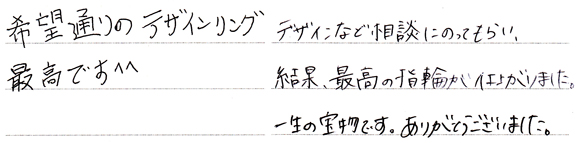 希望通りのデザインリング
最高です^^
デザインなど相談にのってもらい、
結果、最高の指輪が仕上がりました。
一生の宝物です。ありがとうございました。